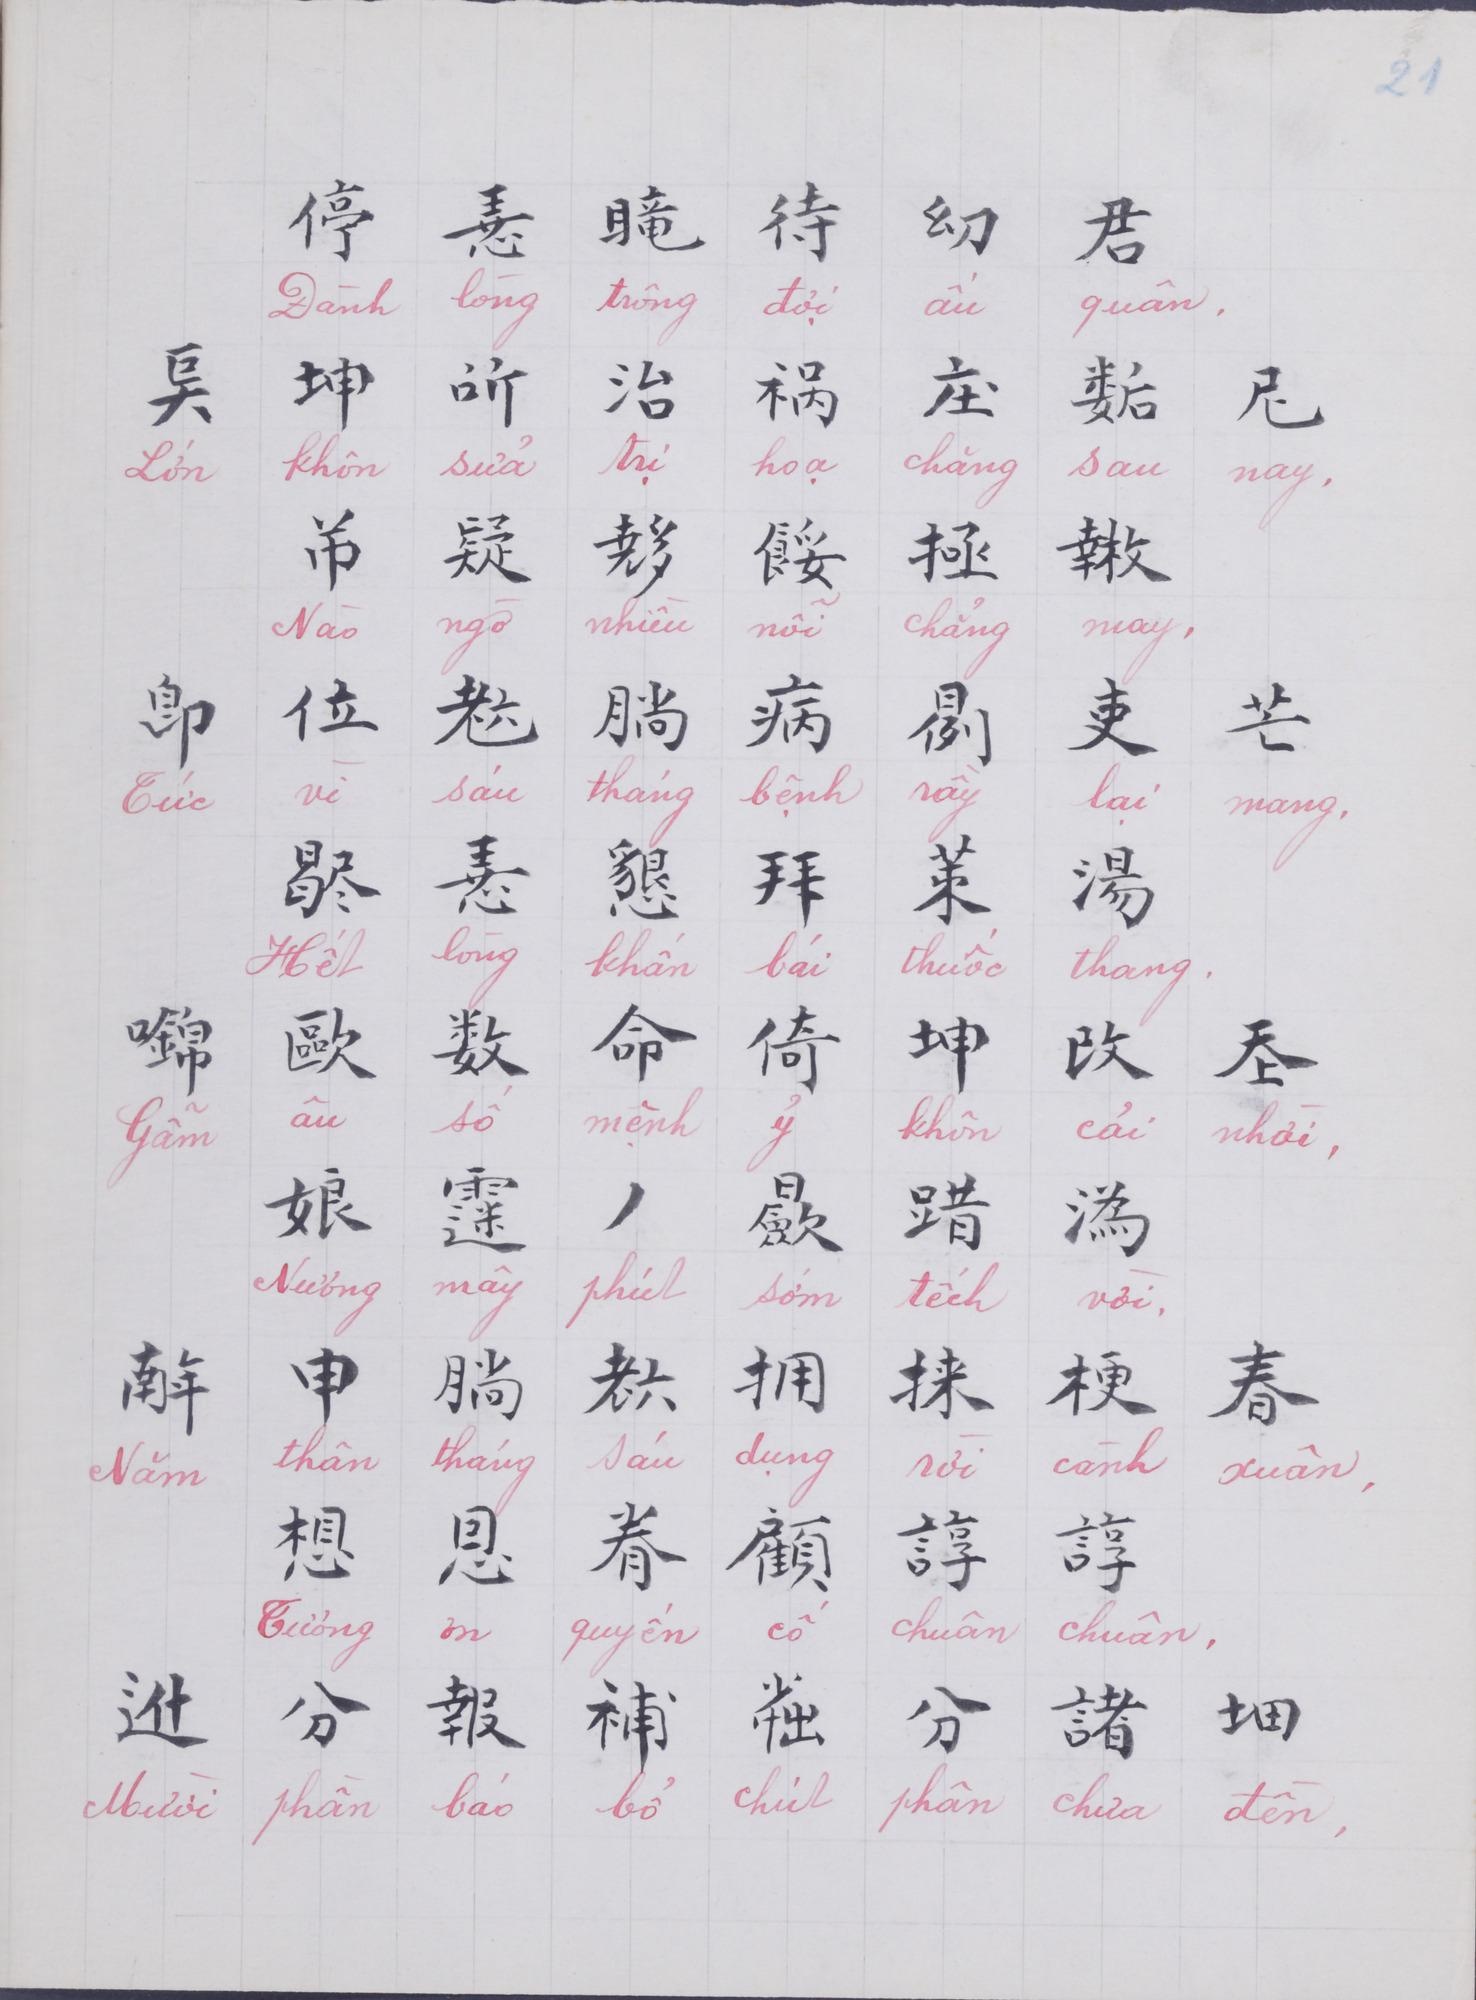 21
停 㤙 𥊣 待 幼 君
Dành lòng trông đợi ấu quân,
㕦 坤 𠸗 治 祸 庄 𡢐 尼
Lớn khôn sửa trị hoạ chăng sau nay,
疑 餒 極
Nào ngờ nhiều nỗi chẳng may,
即 位 𦒹 𣎃 病 吏 芒
Tức vì sáu tháng bệnh rầy lại mang,
懇 拜 湯
Hết lòng khấn bái thuốc thang,
㘌 歐 数 命 倚 坤 改
Gẫm âu số mệnh ỷ khôn cải nhời,
娘 丿 踖 溈
Nương mây phút sớm tếch vời,
𢆥 申 𣎃 𦒹 拥 捸 梗 春
Năm thân tháng sáu dụng rồi cành xuân,
想 恩 眷 顧 諄 諄
Tưởng ơn quyến cố chuân chuân,
𨑮 分 報 補 분 諸 畑
Mười phần báo bổ chút phân chưa đền,